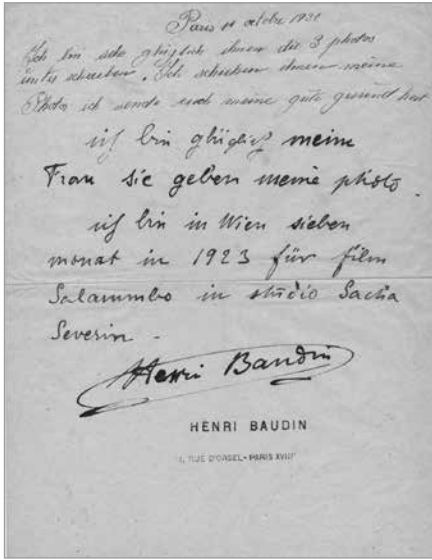 Paris 11 octobre 1931
Ich bin sehr glüglich ihnen die 3 photos
unter schreiben. Ich schicken ihnen meine
Photos ich sende euch meine gute gesund heit
ich bin glüglich meine
Frau sie geben meine photo.
ich bin in Wien sieben
monat in 1923 für film
Salammbo in stüdio Sacha
Severin -
Henri Baudin
HENRI BAUDIN
RUE D'ORSEL - PARIS XVIIIe